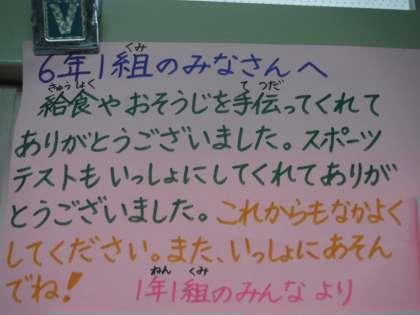 6年1組のみなさんへ
給食やおそうじを手伝ってくれて
ありがとうございました。スポーツ
テストもいっしょにしてくれてありが
とうございました。これからもなかよく
してください。また、いっしょにあそん
でね!
1年1組のみんなより